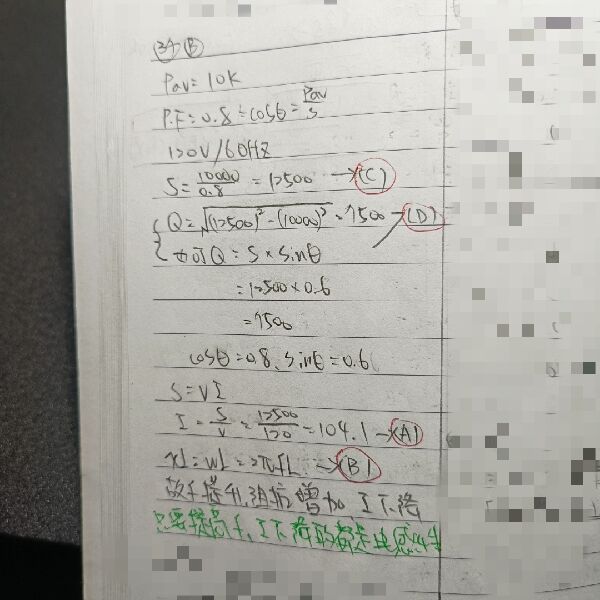 34 B
Pav = 10K
P.F = 0.8 = cosθ = Pav/S
120V/60HZ
S = 10000/0.8 = 12500 → (C)
Q = √(12500)² - (10000)² = 7500 → (D)
也可Q = S × sinθ
= 12500 × 0.6
= 7500
cosθ = 0.8、sinθ = 0.6
S = VI
I = S/V = 12500/120 = 104.1 → (A)
XL = WL = 2πfL → (B)
故f提升,阻抗增加 I下降
只要提高f, I下降的都是電感性